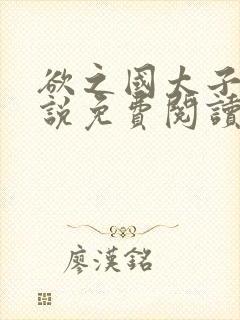 欲之國大子
說免費閱讀
廖漢銘